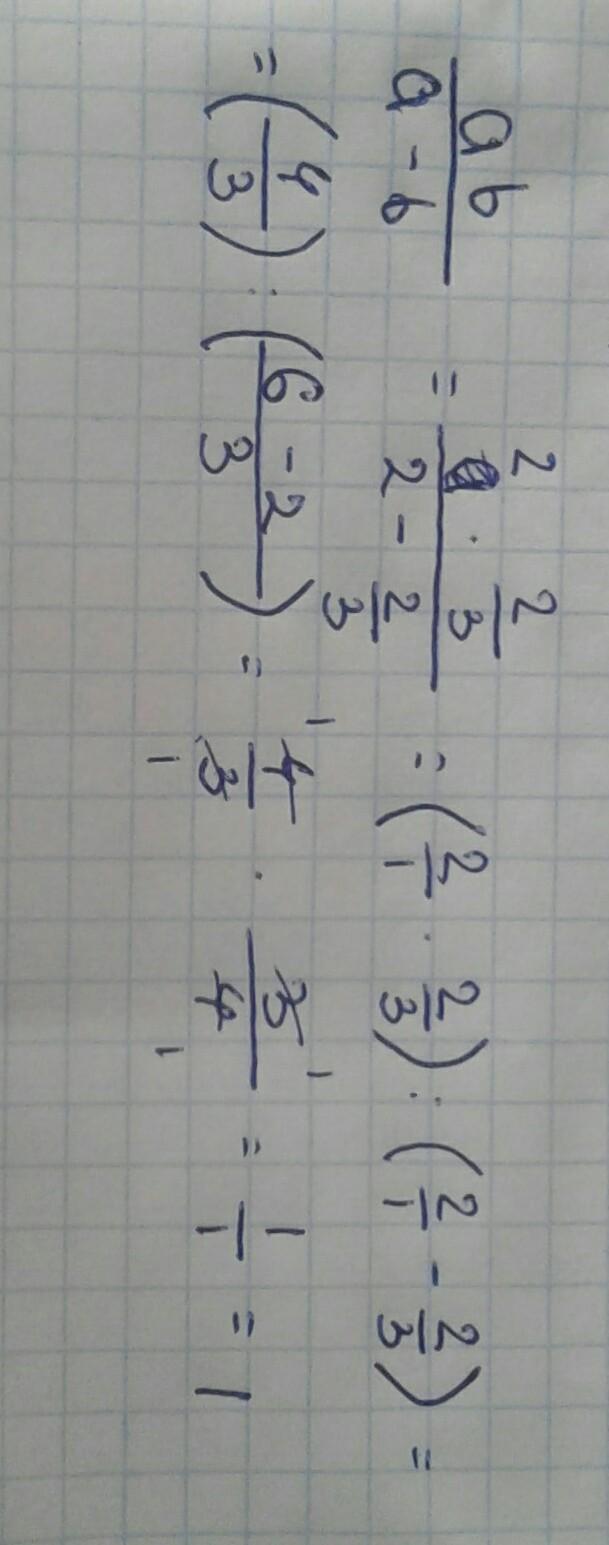 ab/(a - b) = (2 · 2/3)/(2 - 2/3) = (2/1 · 2/3) : (2/1 - 2/3) =
= (4/3) : ((6 - 2)/3) = 4/3 · 3/4 = 1/1 = 1